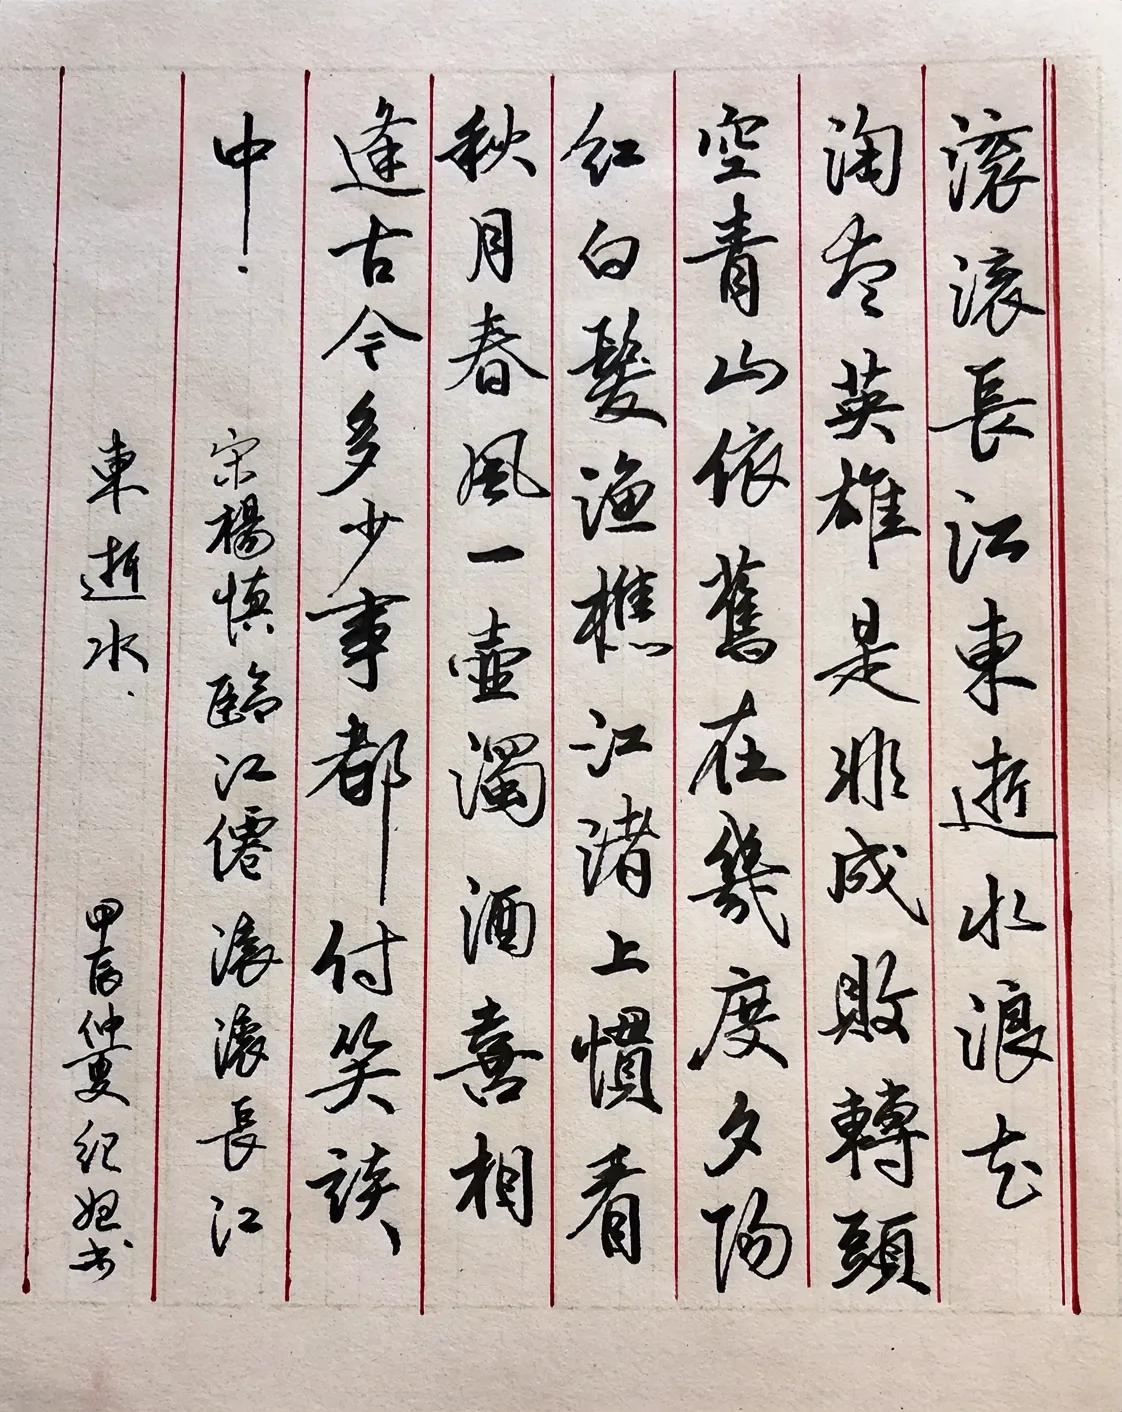 滚滚長江東逝水浪花
淘盡英雄是非成敗轉頭
空青山依舊在幾度夕陽
紅白髮漁樵江渚上慣看
秋月春風一壺濁酒喜相
逢古今多少事都付笑談
中.
宋楊慎臨江僊滚滚長江
東逝水.
甲辰仲夏紀書